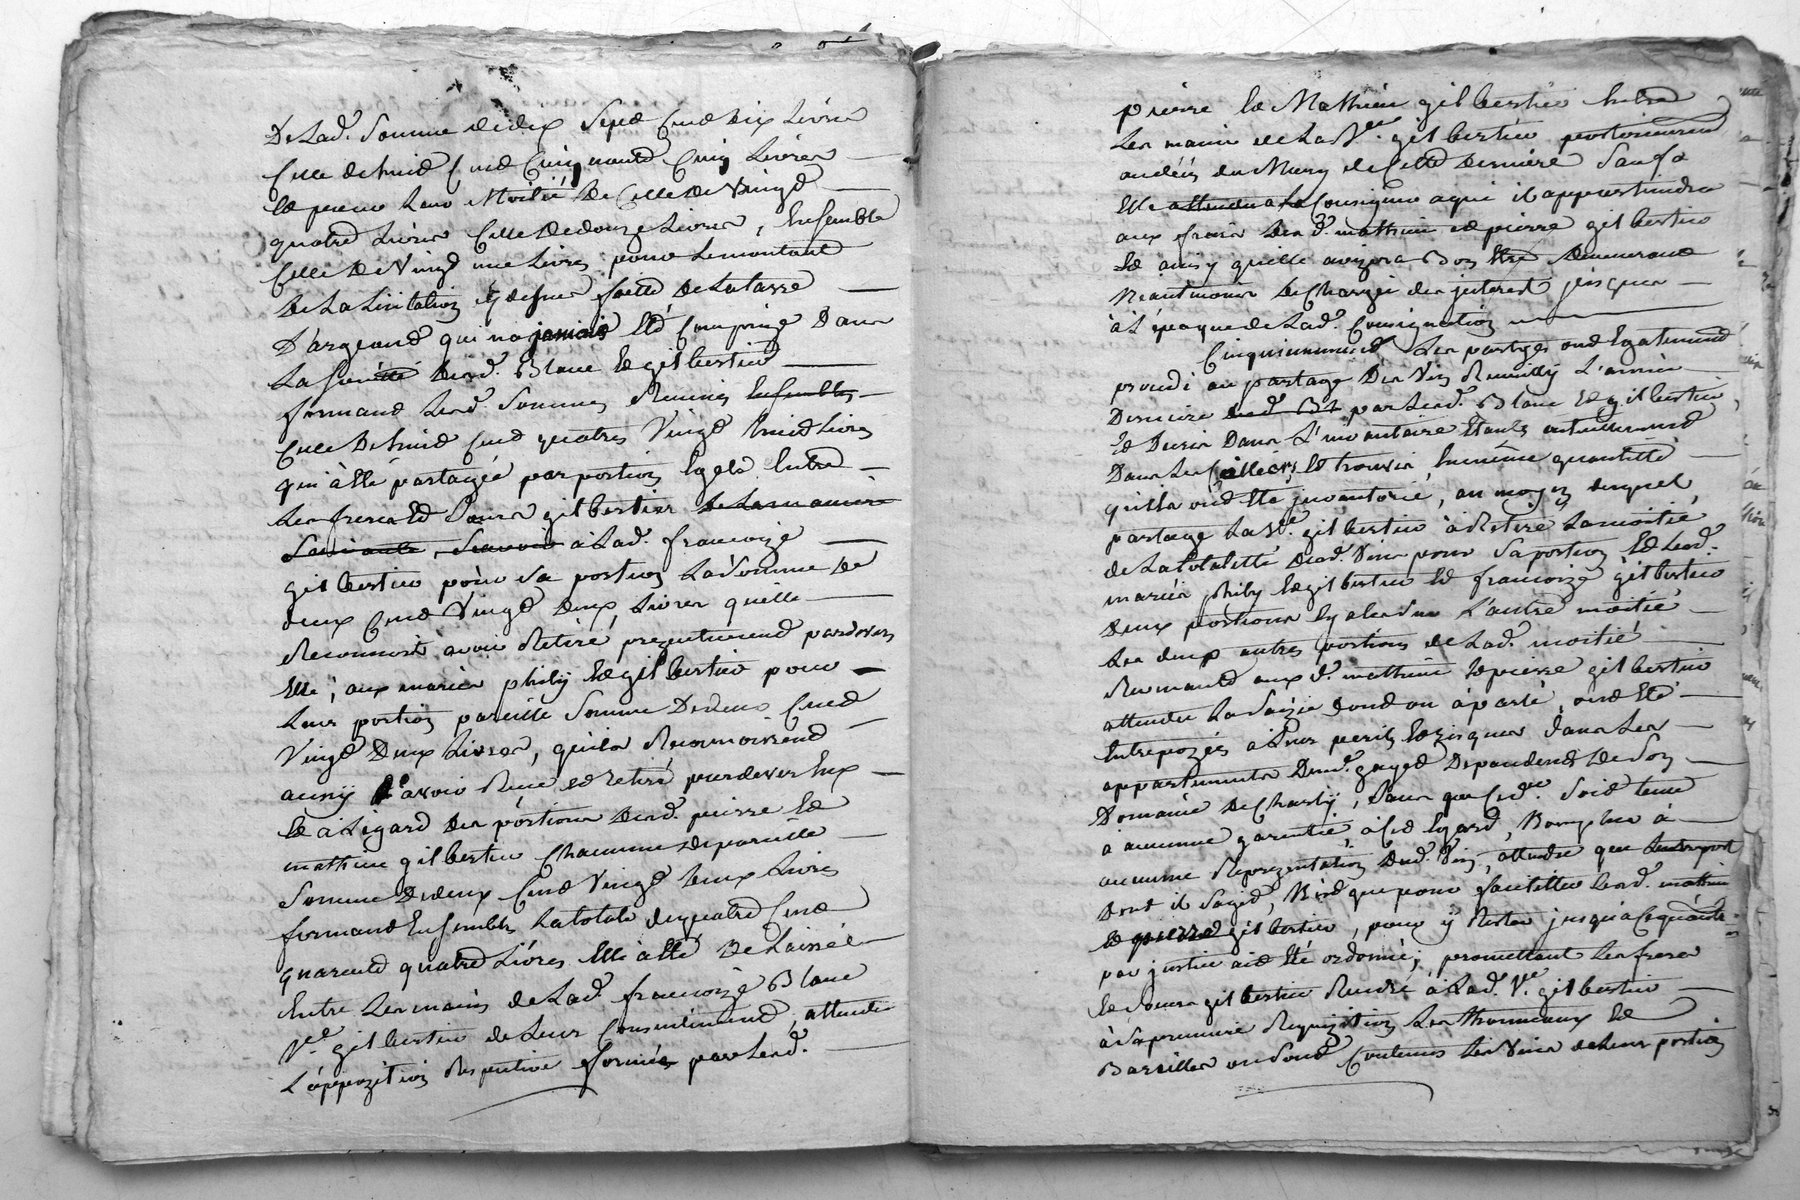 De Lad. Somme de dix Sept Cent dix Livres
Celle de huit Cent Cinquante Cinq Livres
et pour Leur Moitié de Celle de Vingt
quatre Livres Celle de douze Livres, Ensemble
Celle de Vingt une Livres pour Le montant
De La Licitation faitte De La tasse
D'argeant qui na jamais Eté Comprise Dans
La Société desd. Blanc et gilbertier
formant Lesd. Sommes Reunies Ensembles
Celle De huit Cent quatres Vingt huit Livres
qui à Eté partagée par portion Egale Entre
Les freres et Soeurs gilbertier De La maniere
Suivante, Scavoir à Lad. francoize
gilbertier pour Sa portion La Somme De
deux Cent Vingt Deux Livres quelle
Reconnoit avoir Retiré prezentement pardevers
Elle; aux mariés phily et gilbertier pour
Leur portion pareille Somme De deux Cent
Vingt Deux Livres, quils Reconnoissent
aussy avoir Recu et retiré pardevers Eux
et à Legard des portions desd. pierre et
mathieu gilbertier Chacune de pareille
Somme De deux Cent Vingt deux Livres
formant Ensembles La totale de quatre Cent
quarente quatre Livres Elle à Eté De Laissée
Entre Les mains de Lad. francoize Blanc
Ve. gilbertier de Leur Consentement, attendu
L'oppozition Respective formée par Lesd.
pierre et Mathieu gilbertier Entre
Les mains de La Ve. gilbertier posterieurement
au décès du Mary de Cette Derniere Sauf a
Elle attendu a La Consigner a qui il appartiendra
aux frais desd. mathieu et pierre gilbertier
et ainsy quelle avizera Bon Etre Demeurant
Neantmoins De Chargée des jnterest jusques
à L'époque de Lad. Consignation
Cinquiemement Les parties ont Egalement
procedé au partage Des Vins Receuilly L'année
Derniere par Lesd. Blanc et gilbertier
et Decris Dans L'inventaire Etants actuellement
Dans Les Celliers, et trouvés En même quantitté
quils ont Eté jnventorié, au moyen duquel
partage La Ve. gilbertier à Retiré La moitié
de La totalitté desd. Vins pour Sa portion et Lesd.
mariés phily et gilbertier et francoize gilbertier
Deux portions Egales dans L'autre moitié
Les deux autres portions de Lad. moitié
Revenants aux d. mathieu et pierre gilbertier
attendu La Saizie dont on à parlé, ont Eté
Entrepozés à Leur perils et risques Dans Les
appartements Dud. gayet Dependends de Son
Domaine De Charly, Sans que Led. Soit tenu
à aucunne garentie à Cet Egard, Non plus à
aucunne Reprezentation Dud. Vin, attendu que Lentreport
Dont il Sagit, N'est que pour faciliter Lesd. mathieu
et pierre gilbertier, pour y Rester jusqu'à Ce quautre=
par justice ait Eté ordonné; promettant Les freres
et Soeurs gilbertier Rendre à Lad. Ve. gilbertier
à Sa premiere Requizition Les thonneaux et
Barilles ou Sont Contenus Les Vins de Leur portion